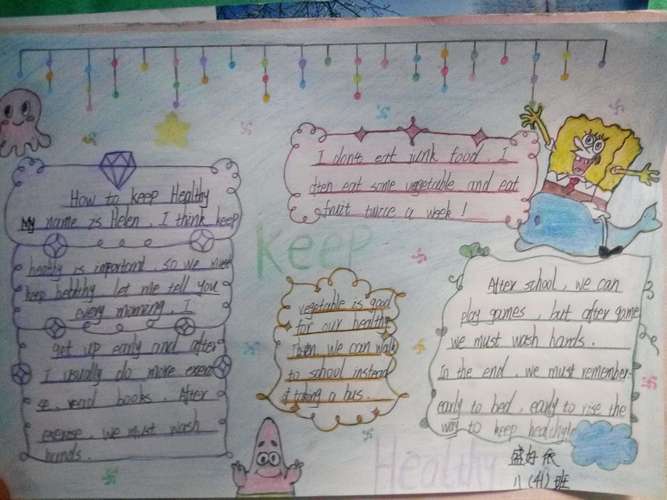 How to keep Healthy
My name is Helen. I think keep
healthy is importand, so we must
keep heblthy let me tell you
every morning, I
get up early and after
I usually do more exerci
se, read books. After
exerise, we must wash
hands.
I don't eat junk food. I
often eat some vegetable and eat
fruit twice a week!
Keep
vegetable is good
for our healthy
Then, we can walk
to school instead
of taking a bus.
After school, we can
play games, but after game
we must wash hands.
In the end, we must remember
early to bed, early to rise the
way to keep healthy
Healthy
八(41)班